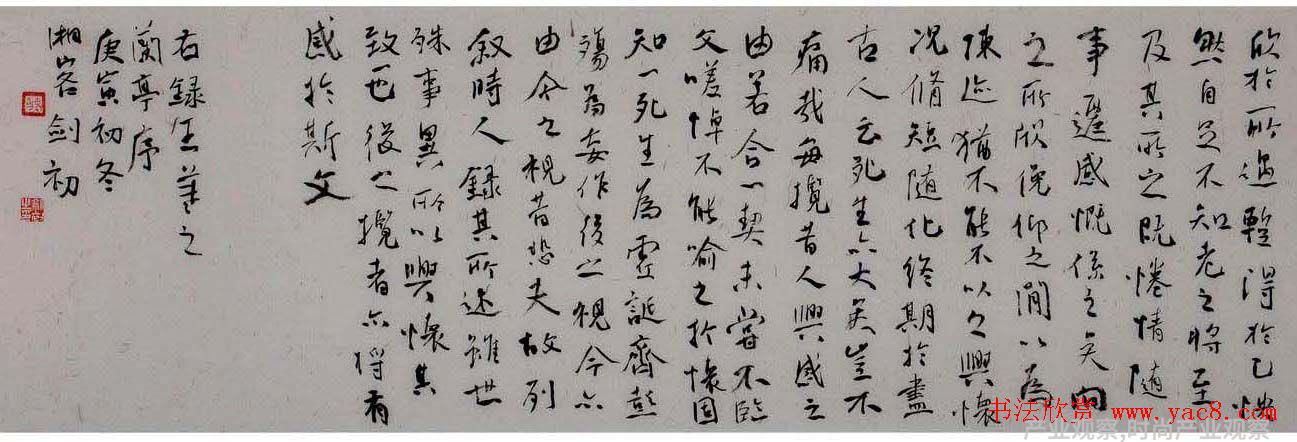 欣於所遇蹔得於己快
然自足不知老之將至
及其所之既惓情隨
事遷感慨係之矣向
之所欣俛仰之閒以為
陳迹猶不能不以之興懷
況脩短隨化終期於盡
古人云死生亦大矣豈不
痛哉每攬昔人興感之
由若合一契未嘗不臨
文嗟悼不能喻之於懷固
知一死生為虛誕齊彭
殤為妄作後之視今亦
由今之視昔悲夫故列
敘時人錄其所述雖世
殊事異所以興懷其
致一也後之攬者亦將有
感於斯文
右錄王羲之
蘭亭序
庚寅初冬
湘客劍初
书法欣赏 www.yac8.com
产业观察,时尚产业观察